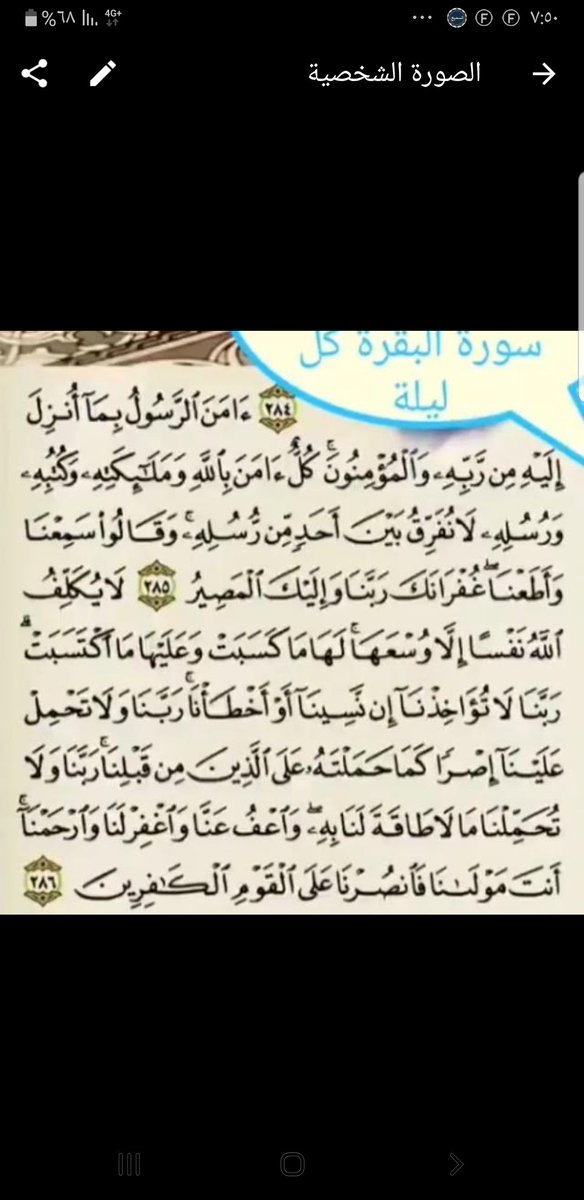 ٧:٥٠ Ⓕ Ⓕ ... 4G+ %٦٨
الصورة الشخصية
سورة البقرة كل
ليلة
٢٨٤ ءَامَنَ ٱلرَّسُولُ بِمَآ أُنزِلَ
إِلَيْهِ مِن رَّبِّهِۦ وَٱلْمُؤْمِنُونَۚ كُلٌّ ءَامَنَ بِٱللَّهِ وَمَلَـٰٓئِكَتِهِۦ وَكُتُبِهِۦ
وَرُسُلِهِۦ لَا نُفَرِّقُ بَيْنَ أَحَدٍ مِّن رُّسُلِهِۦۚ وَقَالُوا۟ سَمِعْنَا
وَأَطَعْنَاۖ غُفْرَانَكَ رَبَّنَا وَإِلَيْكَ ٱلْمَصِيرُ ٢٨٥ لَا يُكَلِّفُ
ٱللَّهُ نَفْسًا إِلَّا وُسْعَهَاۚ لَهَا مَا كَسَبَتْ وَعَلَيْهَا مَا ٱكْتَسَبَتْۗ
رَبَّنَا لَا تُؤَاخِذْنَآ إِن نَّسِينَآ أَوْ أَخْطَأْنَاۚ رَبَّنَا وَلَا تَحْمِلْ
عَلَيْنَآ إِصْرًا كَمَا حَمَلْتَهُۥ عَلَى ٱلَّذِينَ مِن قَبْلِنَاۚ رَبَّنَا وَلَا
تُحَمِّلْنَا مَا لَا طَاقَةَ لَنَا بِهِۦۖ وَٱعْفُ عَنَّا وَٱغْفِرْ لَنَا وَٱرْحَمْنَآۚ
أَنتَ مَوْلَىٰنَا فَٱنصُرْنَا عَلَى ٱلْقَوْمِ ٱلْكَـٰفِرِينَ ٢٨٦